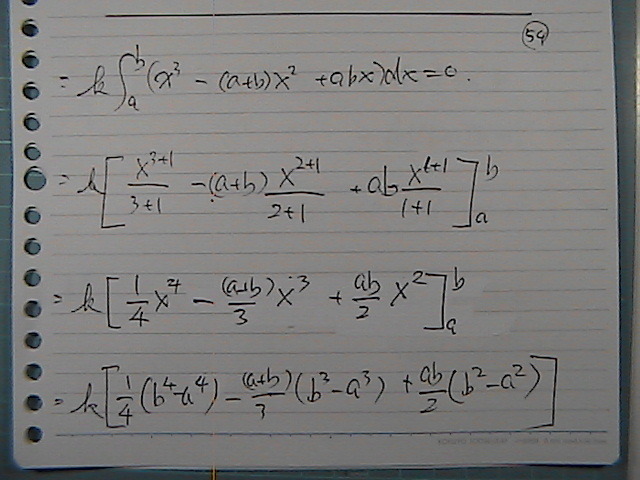 54
= k∫_a^b (x³ - (a+b)x² + abx)dx = 0.
= k[ x^{3+1}/(3+1) - (a+b) x^{2+1}/(2+1) + ab x^{1+1}/(1+1) ]_a^b
= k[ 1/4 x⁴ - (a+b)/3 x³ + ab/2 x² ]_a^b
= k[ 1/4 (b⁴-a⁴) - (a+b)/3 (b³-a³) + ab/2 (b²-a²) ]